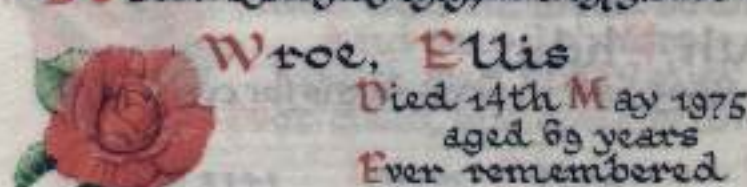 Wroe, Ellis
Died 14th May 1975
aged 69 years
Ever remembered